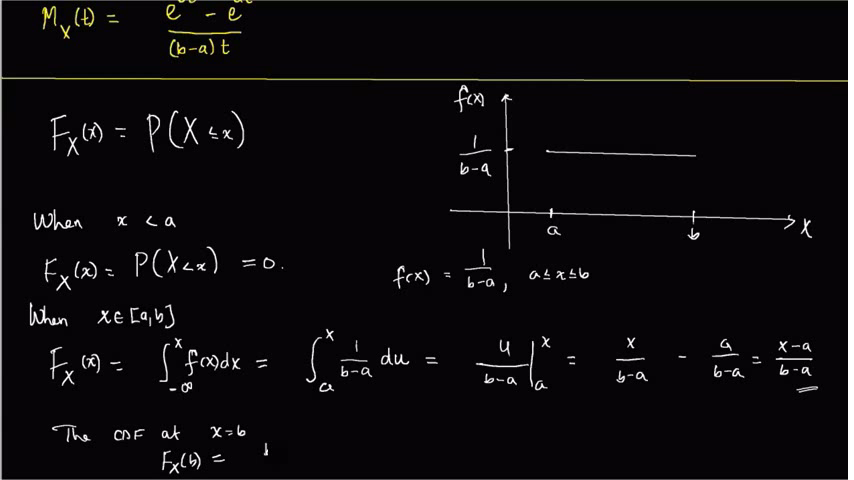 M_X(t) = e − e / (b-a) t
F_X(x) = P(X ≤ x)
f(x)
1/(b-a)
a b x
When x < a
F_X(x) = P(X < x) = 0.
f(x) = 1/(b-a), a ≤ x ≤ b
When x ∈ [a,b]
F_X(x) = ∫_{-∞}^{x} f(x)dx = ∫_{a}^{x} 1/(b-a) du = u/(b-a) |_{a}^{x} = x/(b-a) - a/(b-a) = (x-a)/(b-a)
The CDF at x=b
F_X(b) =